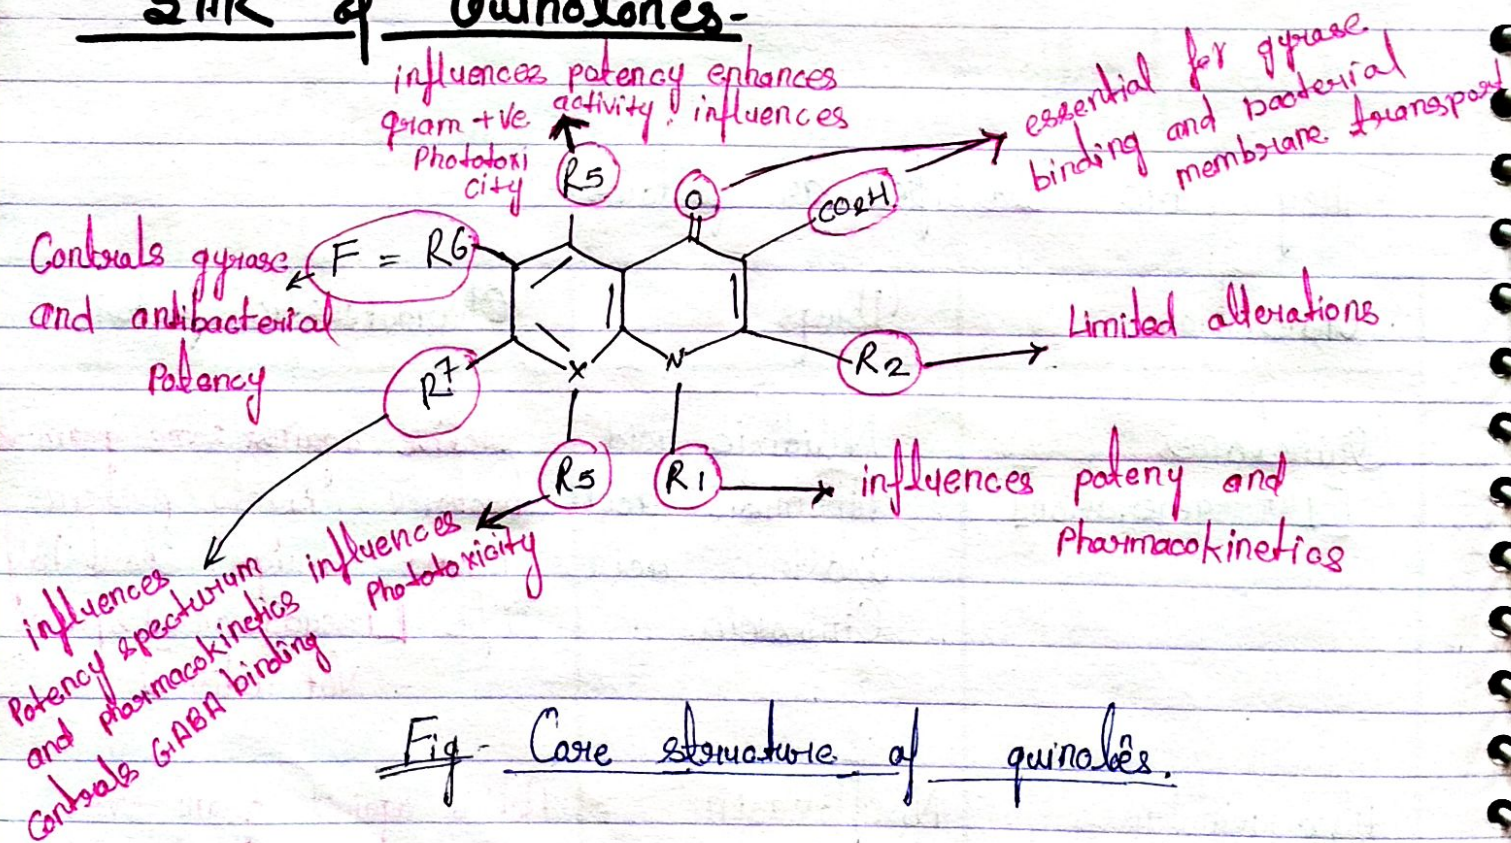 SAR of Quinolones-
influences potency enhances
gram +ve activity! influences
Phototoxi
city
essential for gyrase
binding and bacterial
membrane transport
R5
O
CO2H
Controls gyrase
and antibacterial
Potency
F = R6
R7
X
N
R2
Limited alterations
R5
R1
influences poteny and
Pharmacokinetics
influences
Phototoxicity
influences
Potency specturum
and pharmacokinetics
controls GABA binding
Fig- Core structure of quinolês.